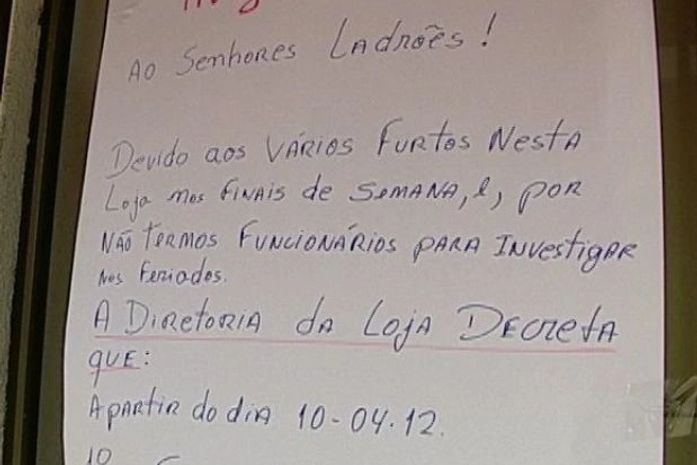 Ao Senhores Ladroês!
Devido aos VÁRIOS FURTOS NESTA
Loja nos FINAIS de SEMANA, e, POR
NÃO TERMOS FUNCIONÁRIOS PARA INVestigAR
Nos Feriados.
A DIRetoRIA da Loja DECReta
QUE:
A partir do dia 10-04-12.
10